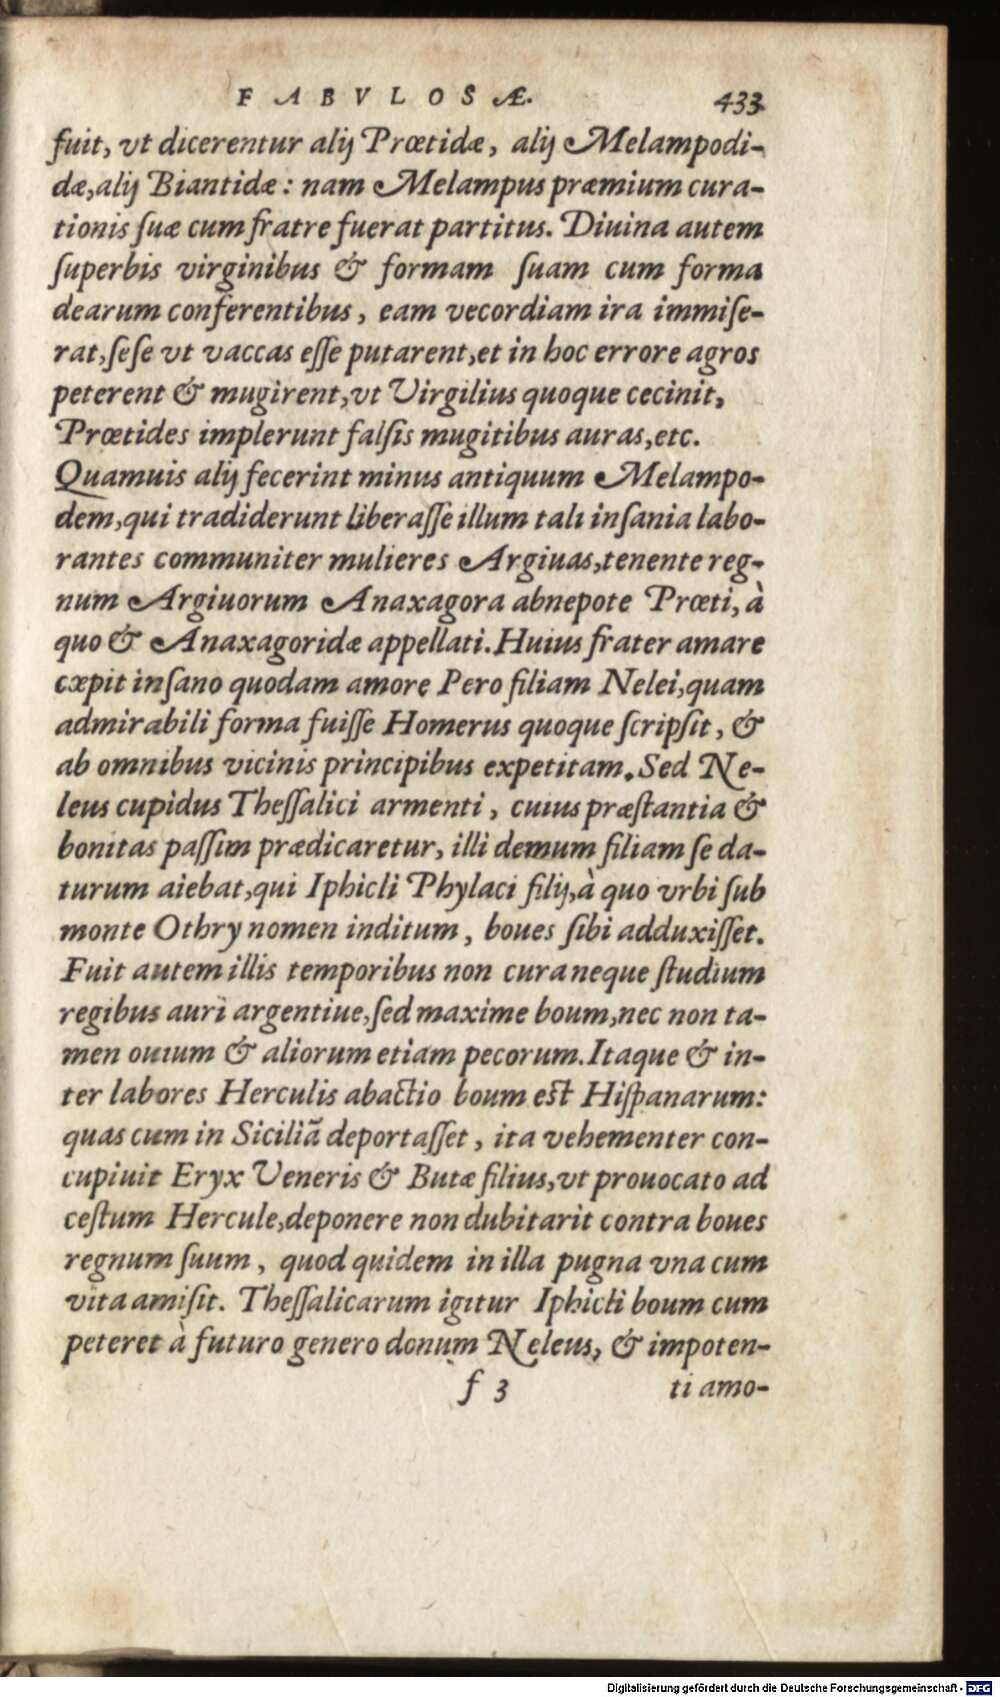 FABVLOSÆ. 433
fuit, vt dicerentur alij Prœtidæ, alij Melampodi-
dæ, alij Biantidæ: nam Melampus præmium cura-
tionis suæ cum fratre fuerat partitus. Diuina autem
superbis virginibus & formam suam cum forma
dearum conferentibus, eam vecordiam ira immise-
rat, sese vt vaccas esse putarent, et in hoc errore agros
peterent & mugirent, vt Virgilius quoque cecinit,
Prœtides implerunt falsis mugitibus auras, etc.
Quamuis alij fecerint minus antiquum Melampo-
dem, qui tradiderunt liberasse illum tali insania labo-
rantes communiter mulieres Argiuas, tenente reg-
num Argiuorum Anaxagora abnepote Prœti, à
quo & Anaxagoridæ appellati. Huius frater amare
cæpit insano quodam amore Pero filiam Nelei, quam
admirabili forma fuisse Homerus quoque scripsit, &
ab omnibus vicinis principibus expetitam. Sed Ne-
leus cupidus Thessalici armenti, cuius præstantia &
bonitas passim prædicaretur, illi demum filiam se da-
turum aiebat, qui Iphicli Phylaci filij, à quo vrbi sub
monte Othry nomen inditum, boues sibi adduxisset.
Fuit autem illis temporibus non cura neque studium
regibus auri argentiue, sed maxime boum, nec non ta-
men ouium & aliorum etiam pecorum. Itaque & in-
ter labores Herculis abactio boum est Hispanarum:
quas cum in Siciliã deportasset, ita vehementer con-
cupiuit Eryx Veneris & Butæ filius, vt prouocato ad
cestum Hercule, deponere non dubitarit contra boues
regnum suum, quod quidem in illa pugna vna cum
vita amisit. Thessalicarum igitur Iphicli boum cum
peteret à futuro genero donum Neleus, & impoten-
f 3 ti amo-
Digitalisierung gefördert durch die Deutsche Forschungsgemeinschaft - DFG